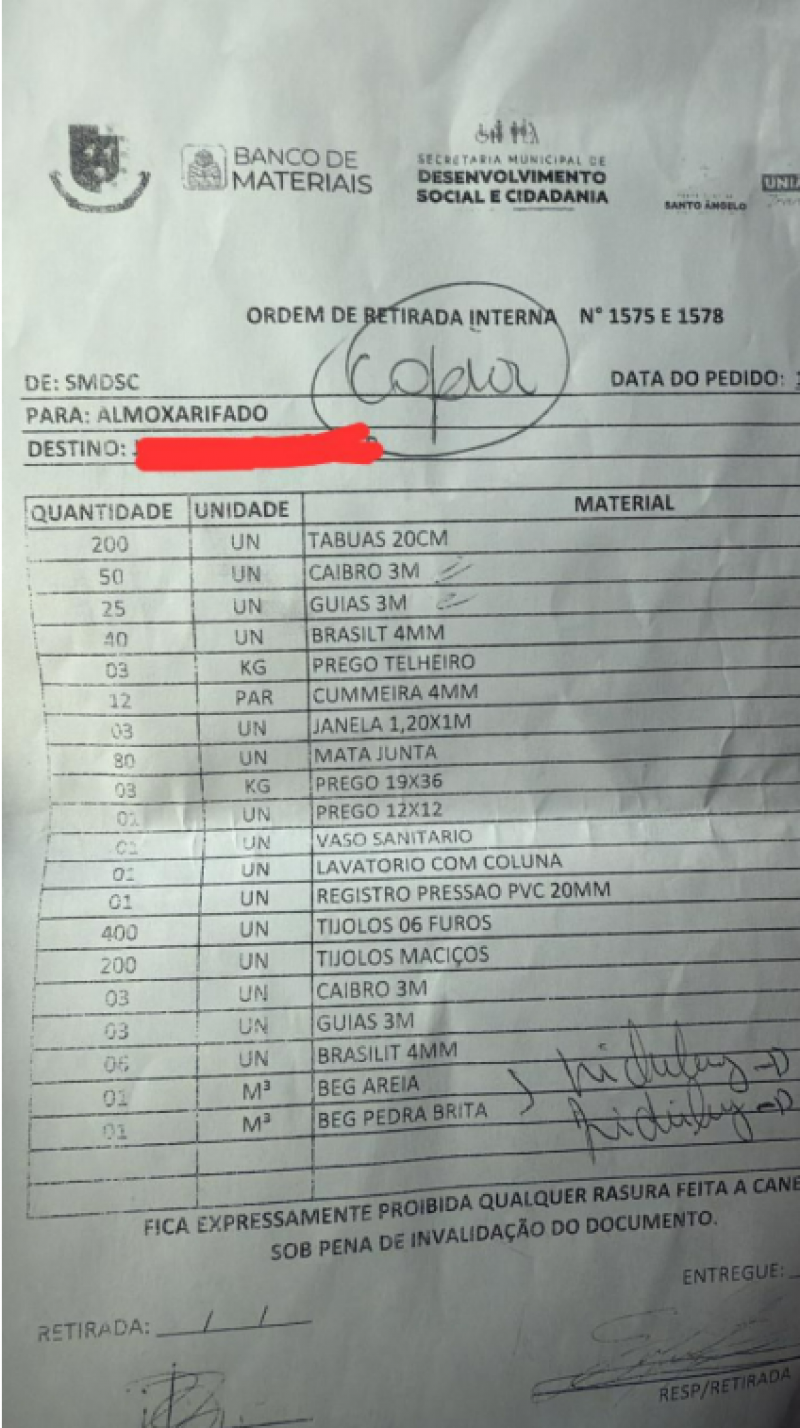 BANCO DE
MATERIAIS
SECRETARIA MUNICIPAL DE
DESENVOLVIMENTO
SOCIAL E CIDADANIA
SANTO ÂNGELO
ORDEM DE RETIRADA INTERNA N° 1575 E 1578
Copia
DE: SMDSC DATA DO PEDIDO:
PARA: ALMOXARIFADO
DESTINO:
QUANTIDADE UNIDADE MATERIAL
200 UN TABUAS 20CM
50 UN CAIBRO 3M
25 UN GUIAS 3M
40 UN BRASILT 4MM
03 KG PREGO TELHEIRO
12 PAR CUMMEIRA 4MM
03 UN JANELA 1,20X1M
80 UN MATA JUNTA
03 KG PREGO 19X36
01 UN PREGO 12X12
01 UN VASO SANITARIO
01 UN LAVATORIO COM COLUNA
01 UN REGISTRO PRESSAO PVC 20MM
400 UN TIJOLOS 06 FUROS
200 UN TIJOLOS MACIÇOS
03 UN CAIBRO 3M
03 UN GUIAS 3M
06 UN BRASILIT 4MM
01 M³ BEG AREIA
01 M³ BEG PEDRA BRITA
FICA EXPRESSAMENTE PROIBIDA QUALQUER RASURA FEITA A CANE
SOB PENA DE INVALIDAÇÃO DO DOCUMENTO.
ENTREGUE:
RETIRADA: / /
RESP/RETIRADA